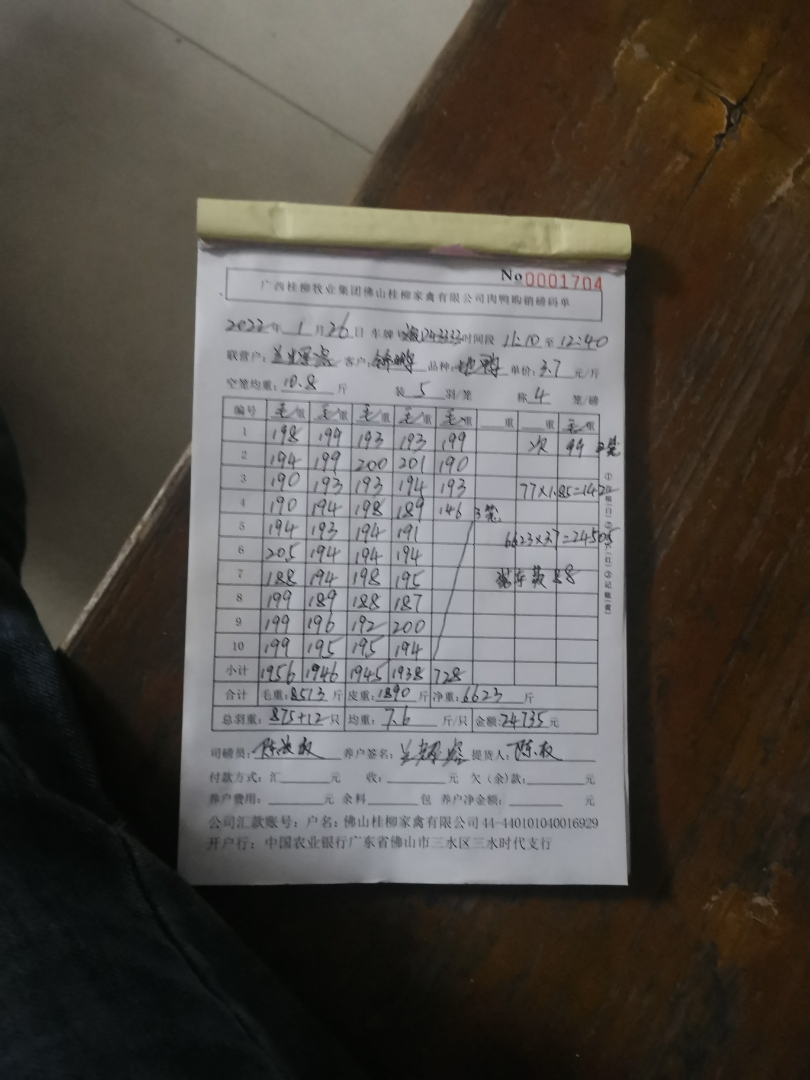 No 0001704
广西桂柳牧业集团佛山桂柳家禽有限公司肉鸭购销磅码单
2022年 1月26日 车牌 时间段 11:10 至 12:40
联营户: 客户: 品种: 单价:3.7 元/斤
空笼均重:10.8 斤 装 5 羽/笼 称 4 笼/磅
编号 毛/重 毛/重 毛/重 毛/重 毛/重 重 重 毛/重
1 198 199 193 193 199 次 99 2笼
2 194 199 200 201 190
3 190 193 193 194 193 77×1.85=142
4 190 194 198 189 146 3笼
5 194 193 194 191 6623×3.7=24505
6 205 194 194 194
7 188 194 198 195 88
8 199 189 188 187
9 199 196 192 200
10 199 195 195 194
小计 1956 1946 1945 1938 728
合计 毛重:8513 斤 皮重:1890 斤 净重:6623 斤
总羽重:875+12 只 均重:7.6 斤/只 金额:24735 元
司磅员: 养户签名: 提货人:
付款方式:汇 元 收: 元 欠(余)款: 元
养户费用: 元 余料 包 养户净金额: 元
公司汇款账号:户名:佛山桂柳家禽有限公司44-440101040016929
开户行:中国农业银行广东省佛山市三水区三水时代支行